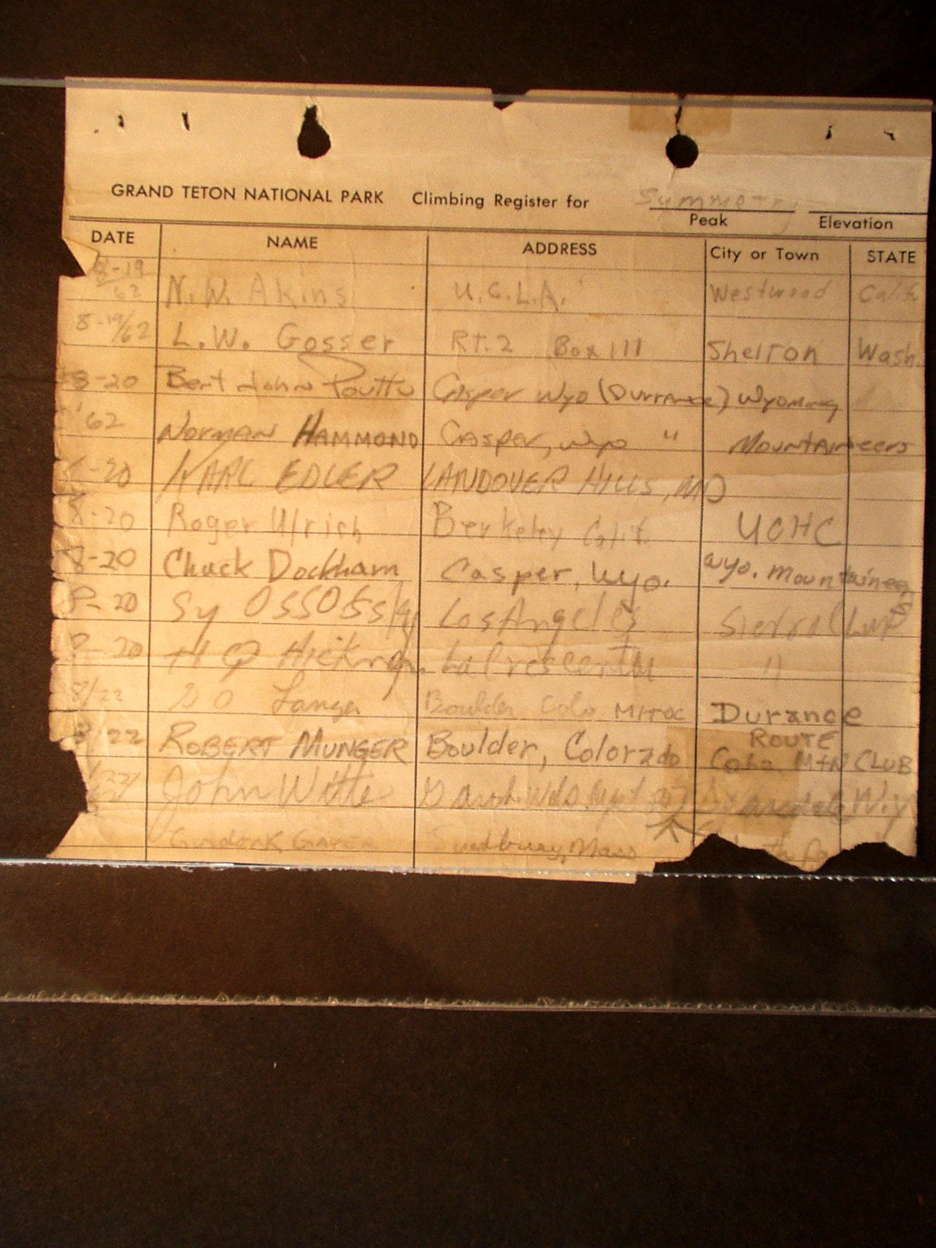 GRAND TETON NATIONAL PARK Climbing Register for
Peak Elevation
DATE NAME ADDRESS City or Town STATE
8-19
62 N.W. Akins U.C.L.A. Westwood Calif.
8-19/62 L.W. Gosser Rt. 2 Box 111 Shelton Wash.
8-20 Bert John Casper Wyo (Durrance) Wyoming
'62 NORMAN HAMMOND Casper, wyo " Mountaineers
8-20 KARL EDLER LANDOVER HILLS, MD
8-20 Roger Ulrich Berkeley Calif. UCHC
8-20 Chuck Dockham Casper, Wyo. Wyo. Mountaineers
8-20 Sy Ossofsky Los Angeles Sierra Club
8-20 H Hickman La Crescenta "
8/22 Boulder Colo Durance
ROUTE
8/22 ROBERT MUNGER Boulder, Colorado Colo. MtN CLUB
John
Sudbury, Mass